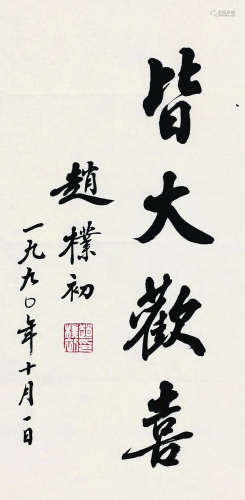 皆大歡喜
趙樸初
一九九〇年十月一日